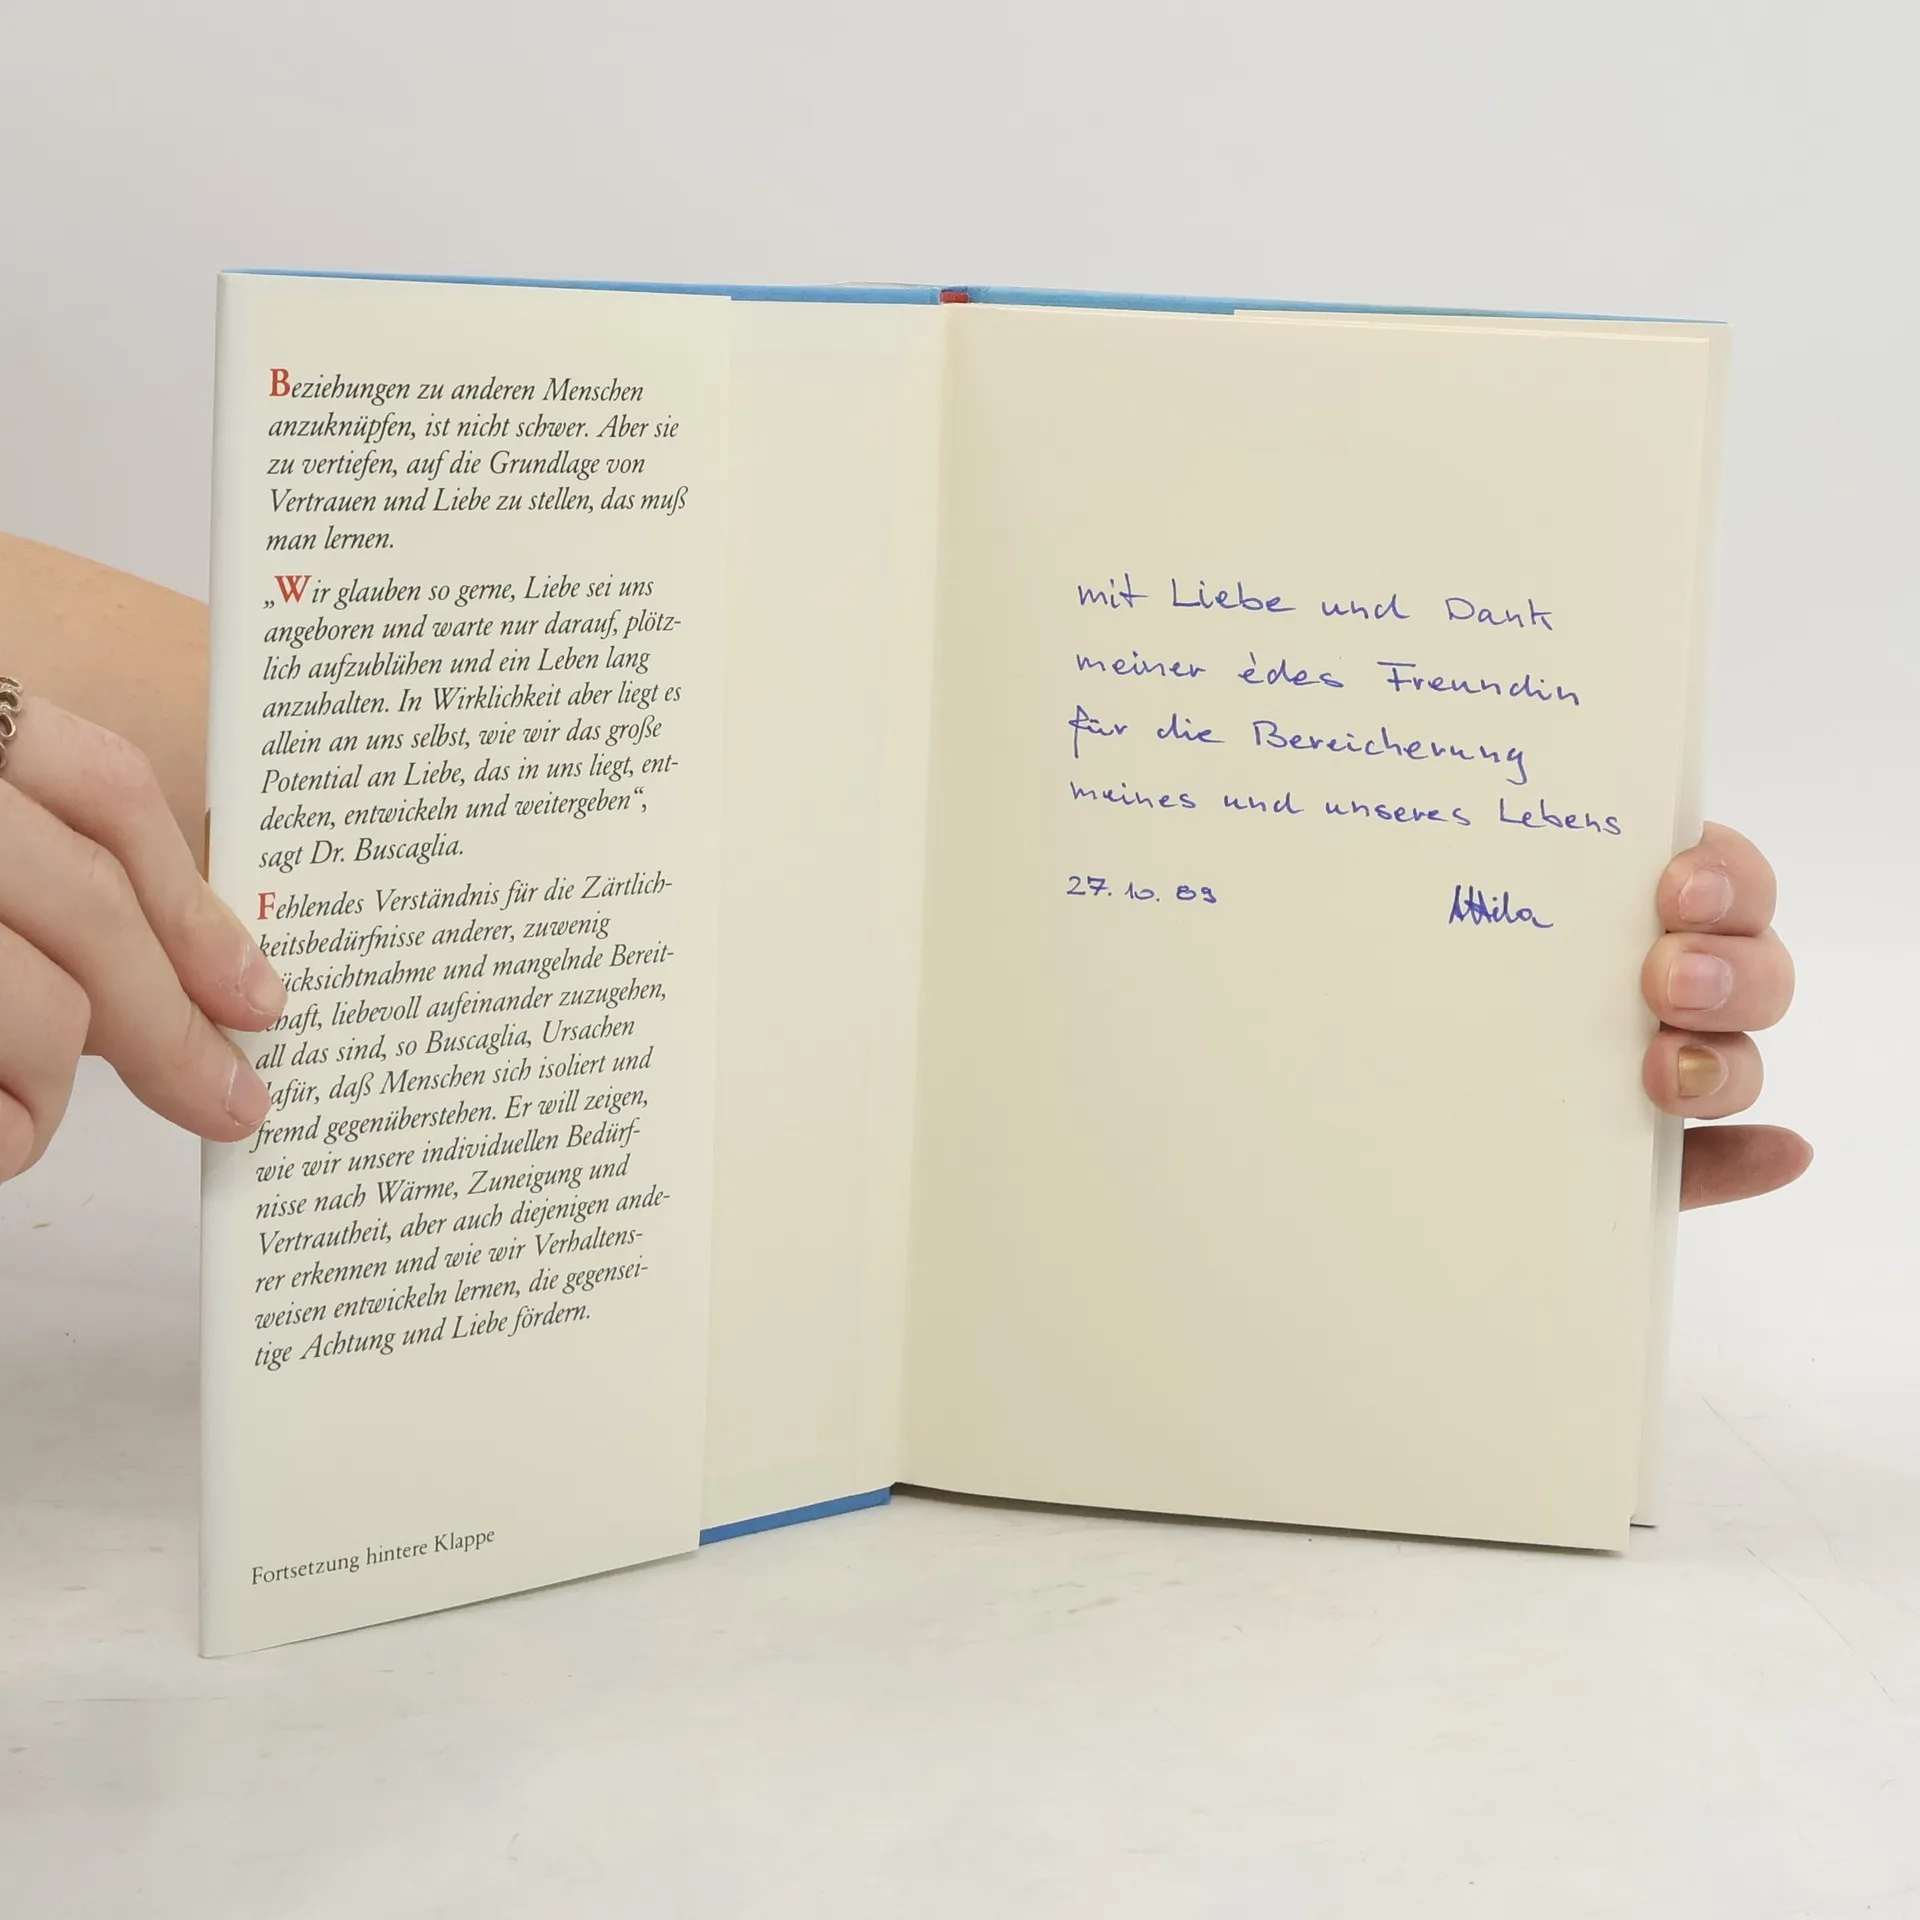 Beziehungen zu anderen Menschen
anzuknüpfen, ist nicht schwer. Aber sie
zu vertiefen, auf die Grundlage von
Vertrauen und Liebe zu stellen, das muß
man lernen.
„Wir glauben so gerne, Liebe sei uns
angeboren und warte nur darauf, plötz-
lich aufzublühen und ein Leben lang
anzuhalten. In Wirklichkeit aber liegt es
allein an uns selbst, wie wir das große
Potential an Liebe, das in uns liegt, ent-
decken, entwickeln und weitergeben“,
sagt Dr. Buscaglia.
Fehlendes Verständnis für die Zärtlich-
keitsbedürfnisse anderer, zuwenig
ücksichtnahme und mangelnde Bereit-
chaft, liebevoll aufeinander zuzugehen,
all das sind, so Buscaglia, Ursachen
afür, daß Menschen sich isoliert und
fremd gegenüberstehen. Er will zeigen,
wie wir unsere individuellen Bedürf-
nisse nach Wärme, Zuneigung und
Vertrautheit, aber auch diejenigen ande-
rer erkennen und wie wir Verhaltens-
weisen entwickeln lernen, die gegensei-
tige Achtung und Liebe fördern.
Fortsetzung hintere Klappe
mit Liebe und Dank
meiner édes Freundin
für die Bereicherung
meines und unseres Lebens
27. 10. 89
Attila